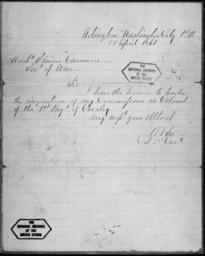 Arlington, Washington City P.O.
20 April 1861
Honble Simon Cameron
Secy of War
Sir
I have the honour to tender
the resignation of my Commission as Colonel
of the 1st Regt of Cavalry
Very resp your Obt Servt
R E Lee
Col 1st Cavy
THE NATIONAL ARCHIVES OF THE UNITED STATES
THE NATIONAL ARCHIVES OF THE UNITED STATES